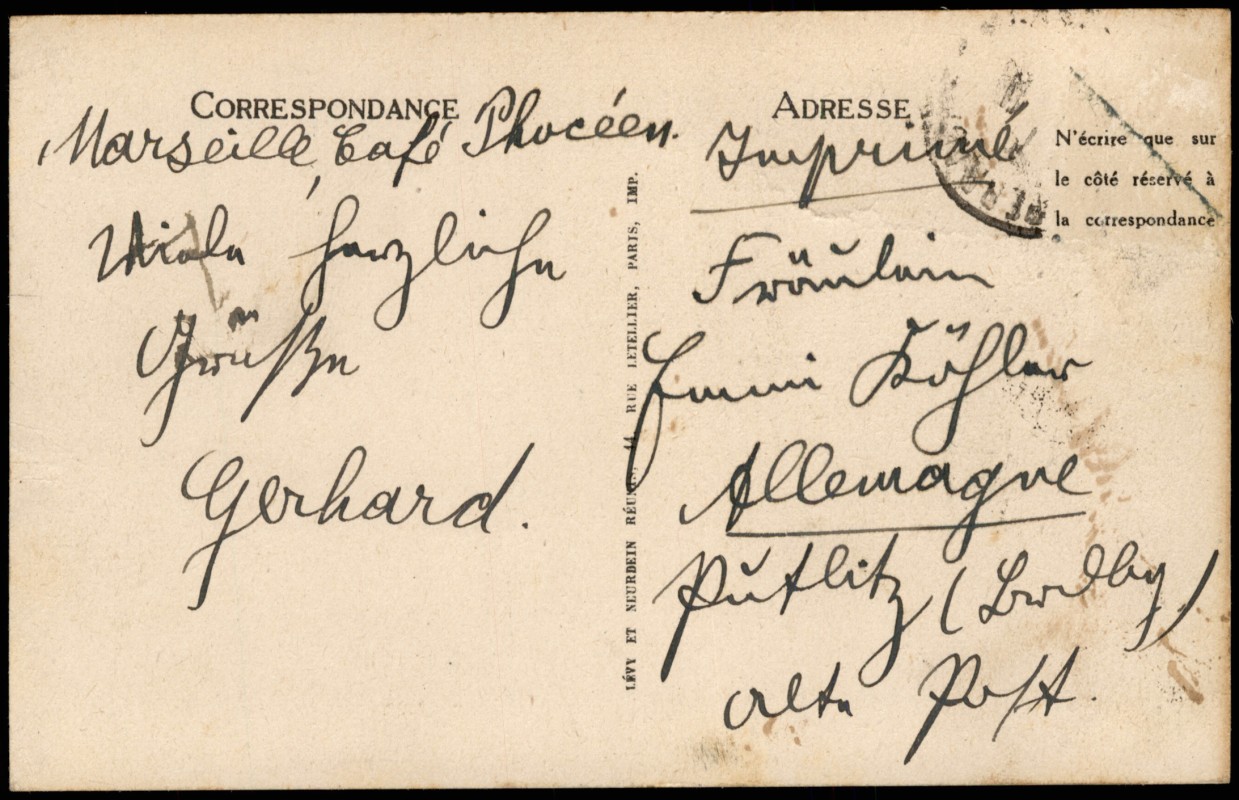 CORRESPONDANCE
Marseille, Café Phocéen.
Viele herzliche
Grüße
Gerhard.
LÉVY ET NEURDEIN RÉUNIS, 44 RUE LETELLIER, PARIS, IMP.
ADRESSE
N'écrire que sur
le côté réservé à
la correspondance
Imprimé
Fräulein
Emmi Köhler
Allemagne
Putlitz (Brdbg)
alte Post.